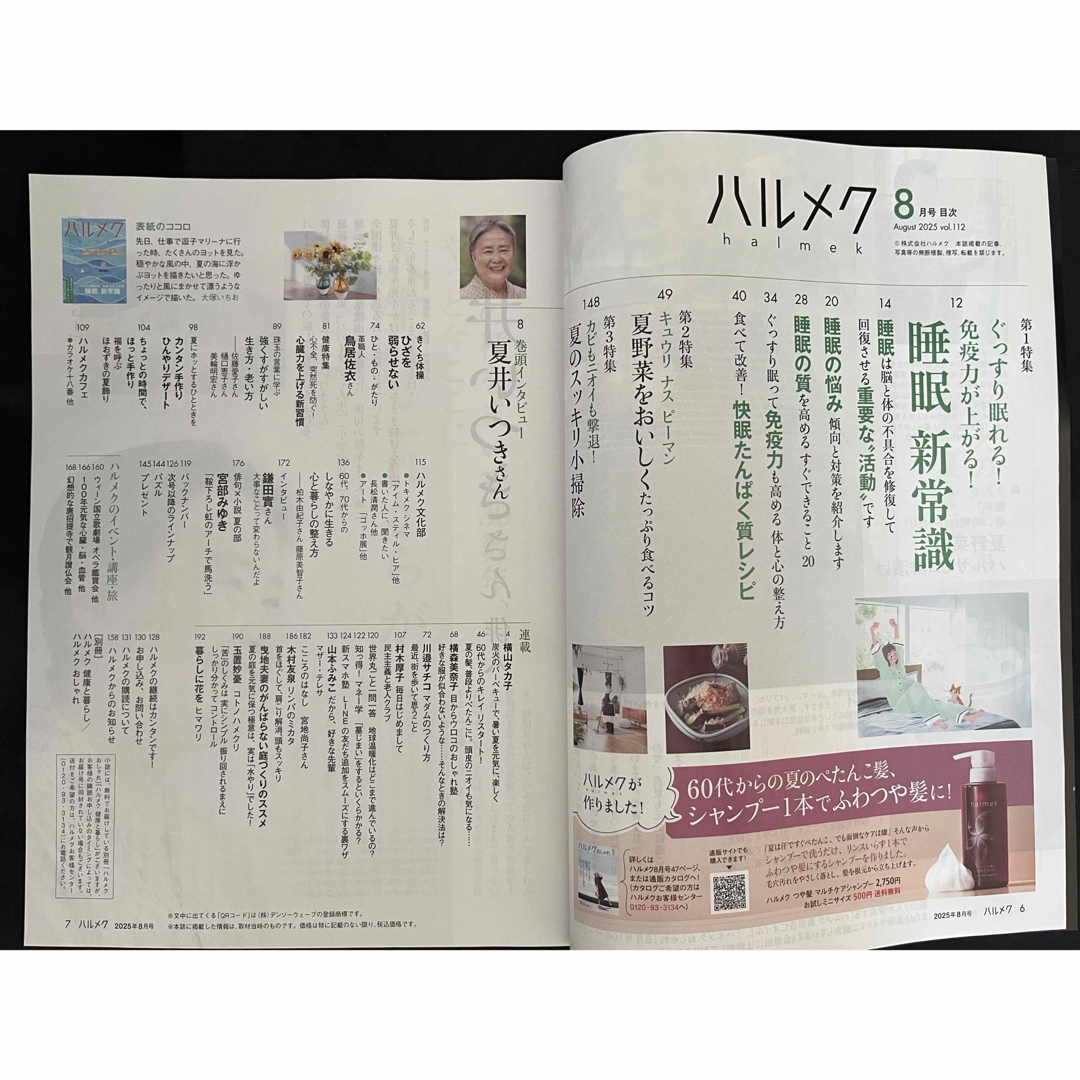 ハルメク
halmek
8月号 目次
August 2025 vol.112
©株式会社ハルメク 本誌掲載の記事、
写真等の無断複製、複写、転載を禁じます。
第1特集
ぐっすり眠れる!
免疫力が上がる!
12
睡眠 新常識
14
睡眠は脳と体の不具合を修復して
回復させる重要な“活動”です
20
睡眠の悩み 傾向と対策を紹介します
28
睡眠の質を高める すぐできること 20
34
ぐっすり眠って免疫力も高める 体と心の整え方
40
食べて改善! 快眠たんぱく質レシピ
第2特集
49
キュウリ ナス ピーマン
夏野菜をおいしくたっぷり食べるコツ
第3特集
148
カビもニオイも撃退!
夏のスッキリ小掃除
ハルメクが
作りました!
60代からの夏のぺたんこ髪、
シャンプー1本でふわつや髪に!
halmek
詳しくは
ハルメク8月号47ページ、
または通販カタログへ!
(カタログご希望の方は
ハルメクお客様センター
0120-93-3134へ)
通販サイトでも
購入できます!
「夏は汗ですぐぺたんこ、でも面倒なケアは嫌」そんな声から
シャンプーで洗うだけ、リンスいらず1本で
ふわつや髪にするシャンプーを作りました。
毛穴汚れをやさしく落とし、髪を根元から立ち上げます。
ハルメク つや髪 マルチケアシャンプー 2,750円
お試しミニサイズ 500円 送料無料
2025年8月号 ハルメク 6
ハルメク
睡眠 新常識
表紙のココロ
先日、仕事で逗子マリーナに行
った時、たくさんのヨットを見た。
穏やかな風の中、夏の海に浮か
ぶヨットを描きたいと思った。ゆ
ったりと風にまかせて漂うような
イメージで描いた。 大塚いちお
8
巻頭インタビュー
夏井いつきさん
62
きくち体操
ひざを
弱らせない
74
ひと・もの・がたり
革職人
鳥居佐衣さん
81
健康特集
心不全、突然死を防ぐ!
心臓力を上げる新習慣
89
珠玉の言葉に学ぶ
強くすがすがしい
生き方・老い方
――佐藤愛子さん
樋口恵子さん
美輪明宏さん
98
夏にホッとするひとときを
カンタン手作り
ひんやりデザート
104
ちょっとの時間で、
ほっと手作り
福を呼ぶ
ほおずきの夏飾り
109
ハルメクカフェ
●カラオケ十八番 他
115
ハルメク文化部
●トキメクシネマ
「アイム・スティル・ヒア」他
●書いた人に、聞きたい
長松清潤さん他
●アート 「ゴッホ展」他
136
60代、70代からの
しなやかに生きる
心と暮らしの整え方
――柏木由紀子さん 藤原美智子さん
172
インタビュー
鎌田實さん
大事なことって変わらないんだよ
176
俳句×小説 夏の部
宮部みゆき
「鞍下ろし虹のアーチで馬洗う」
119 バックナンバー
126 次号以降のラインナップ
144 パズル
145 プレゼント
ハルメクのイベント・講座・旅
160 ウィーン国立歌劇場 オペラ鑑賞会 他
166 100年元気な心臓・脳・血管 他
168 幻想的な唐招提寺で観月讃仏会 他
連載
4 横山タカ子
炭火のバーベキューで、暑い夏を元気に、楽しく
46 60代からのキレイ リスタート!
夏の髪、普段よりぺたんこに。頭皮のニオイも気になる……
68 横森美奈子 目からウロコのおしゃれ塾
好きな服が似合わないような……そんなときの解決法は?
72 川邉サチコ マダムのつくり方
最近、街を歩いて思うこと
107 村木厚子 毎日はじめまして
民主主義と老人クラブ
120 世界丸ごと一問一答 地球温暖化はどこまで進んでいるの?
122 知っ得!マネー学 「墓じまい」をするといくらかかる?
124 新スマホ塾 LINEの友だち追加をスムーズにする裏ワザ
133 山本ふみこ だから、好きな先輩
マザー・テレサ
182 こころのはなし 宮地尚子さん
186 木村友泉 リンパのミカタ
首をほぐして、肩こり解消、頭もスッキリ
188 曳地夫妻のがんばらない庭づくりのススメ
夏の庭を元気に保つ極意は、実は「水やり」でした!
190 玉置妙憂 トンノハメクリ
「苦」のしくみは実にシンプル 振り回されるまえに
しっかり分かってコントロール
192 暮らしに花を ヒマワリ
128 ハルメクの継続はカンタンです!
130 お申し込み、お問い合わせ
131 ハルメクの購読について
158 ハルメクからのお知らせ
[別冊]
ハルメク 健康と暮らし/
ハルメク おしゃれ
小誌には、無料でお届けしている別冊「ハルメク
おしゃれ」「ハルメク 健康と暮らし」がございますが、
お客様の購読お申し込みのタイミングによっては、
お届け号に同封されていない場合もございます。
送付をご希望の方は、ハルメクお客様センター
(0120-93-3134)にお電話ください。
※文中に出てくる「QRコード」は(株)デンソーウェーブの登録商標です。
※本誌に掲載した情報は、取材当時のものです。価格は特に記載のない限り、税込価格です。
7 ハルメク 2025年8月号